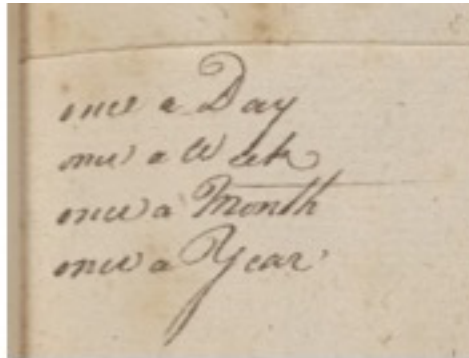 once a Day
once a Week
once a Month
once a Year